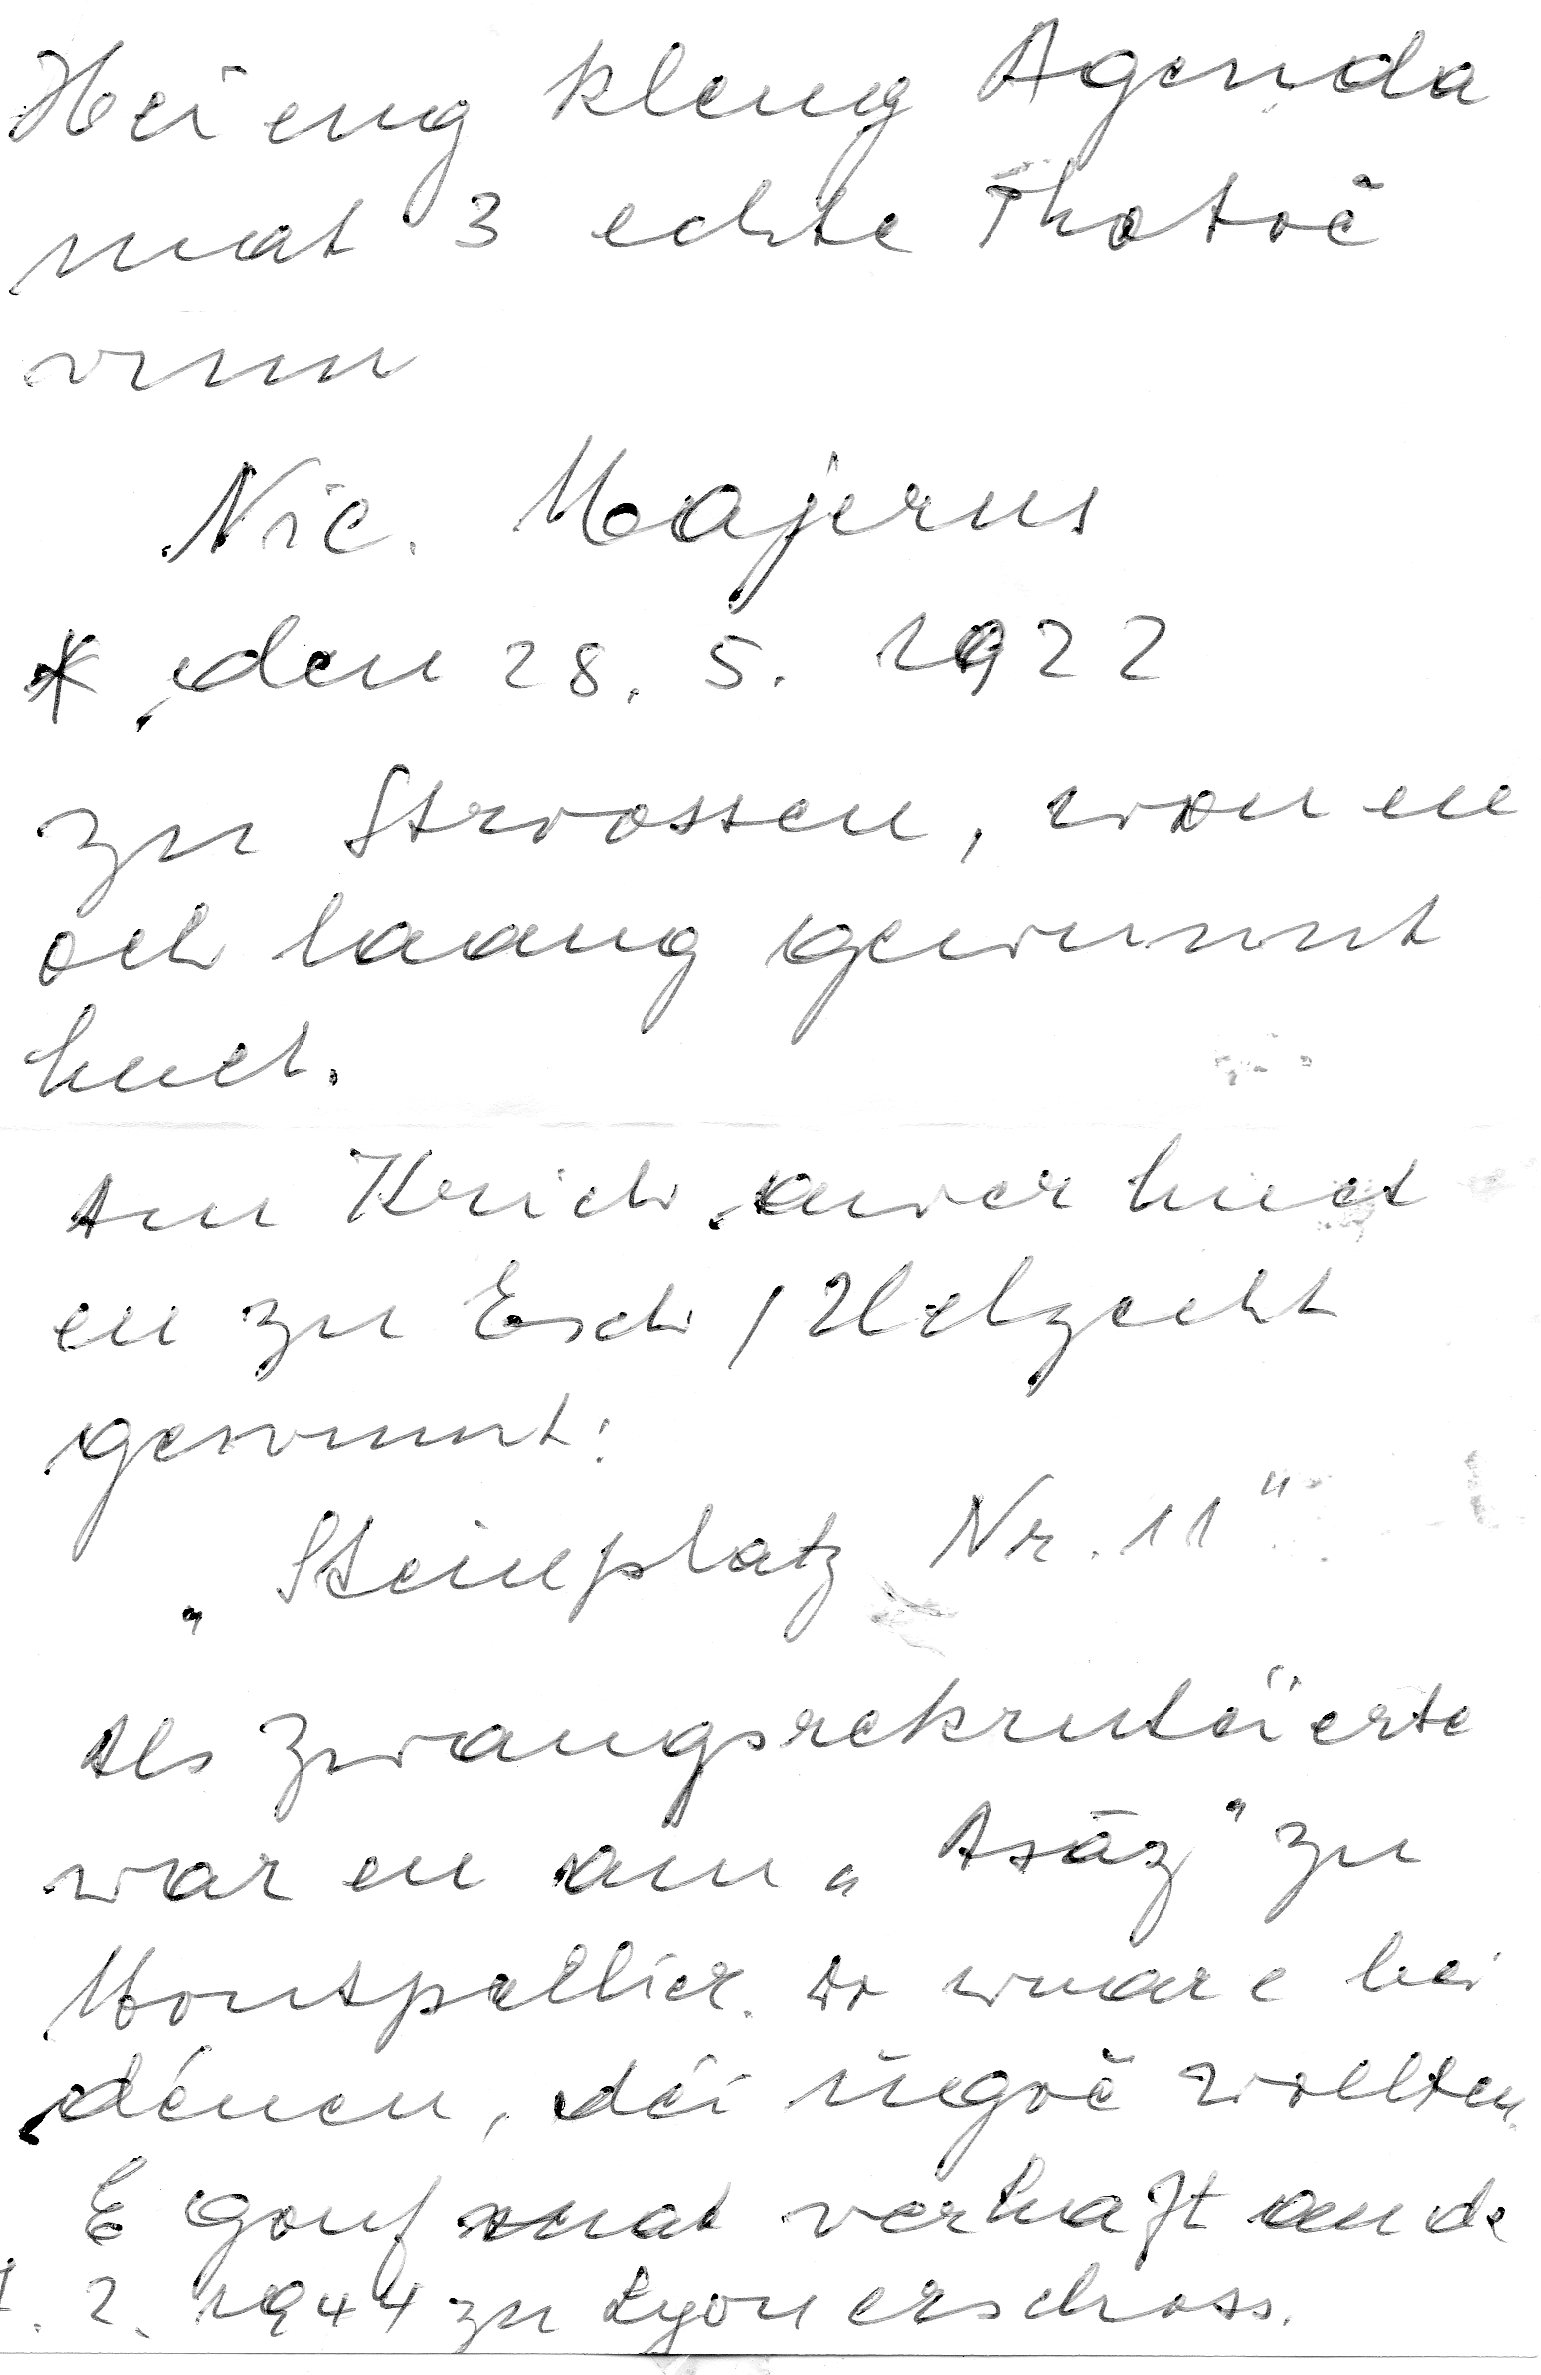 Hei eng kleng Agenda
mat 3 echte Photoë
vum
Nic. Majerus
* den 28. 5. 1922
zu Stroossen, wou en
och laang gewunnt
huet.
Am Krich awer huet
en zu Esch / Uelzecht
gewunnt:
„Steinplatz Nr. 11"
Als Zwangsrekrutéierte
war en am „Asäz" zu
Montpellier. Do wuar e bei
dénen, déi ügoë wollten.
E gouf mat verhaft an de
. 2. 1944 zu Lyon erschoss.